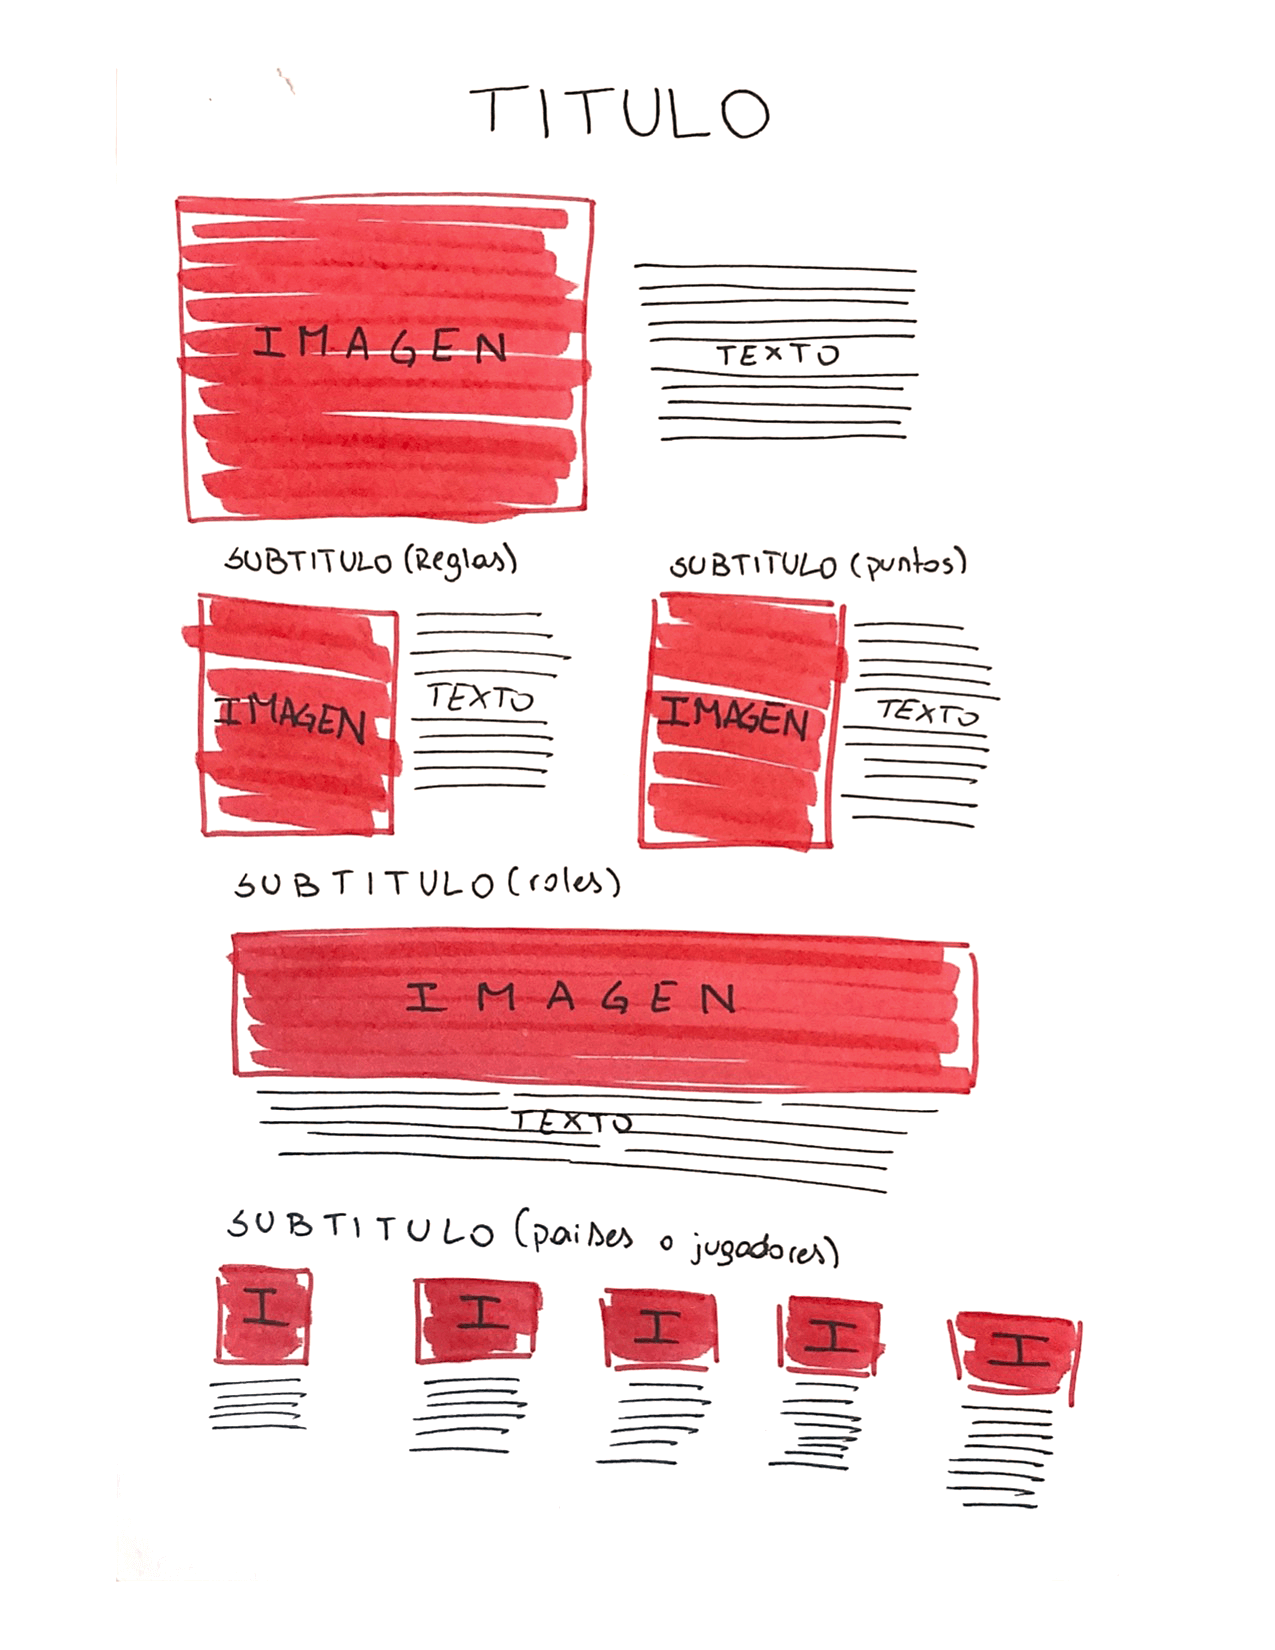 TITULO
IMAGEN
TEXTO
SUBTITULO (Reglas)
SUBTITULO (puntos)
IMAGEN
TEXTO
IMAGEN
TEXTO
SUBTITULO (roles)
IMAGEN
TEXTO
SUBTITULO (paises o jugadores)
I I I I I